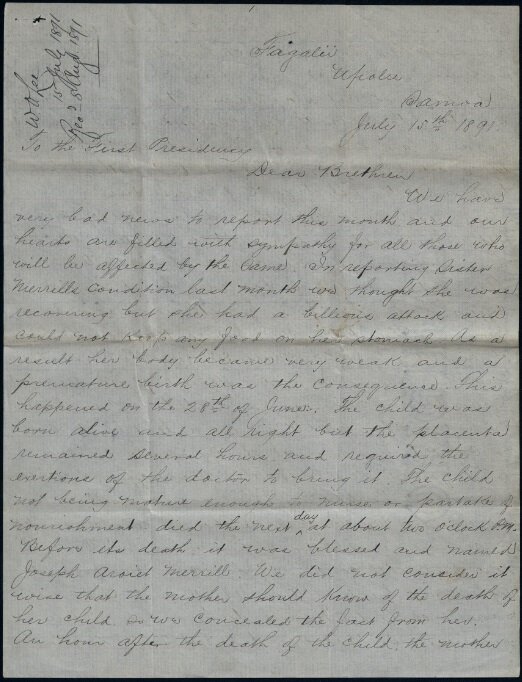 W O Lee
15 July 1891
Rec'd 8 Augt 1891
Fagalii
Upolu
Samoa
July 15th 1891
To the First Presidency
Dear Brethren
We have
very bad news to report this month and our
hearts are filled with sympathy for all those who
will be affected by the same. In reporting Sister
Merrills condition last month we thought she was
recovering but she had a billious attack and
could not keep any food on her stomach As a
result her body became very weak and a
premature birth was the consequence. This
happened on the 28th of June. The child was
born alive and all right but the placenta
remained several hours and required the
exertions of the doctor to bring it The child
not being mature enough to nurse or partake of
nourishment died the next day at about two oclock P.M.
Before its death it was blessed and named
Joseph Merrill. We did not consider it
wise that the mother should know of the death of
her child so we concealed the fact from her.
An hour after the death of the child the mother